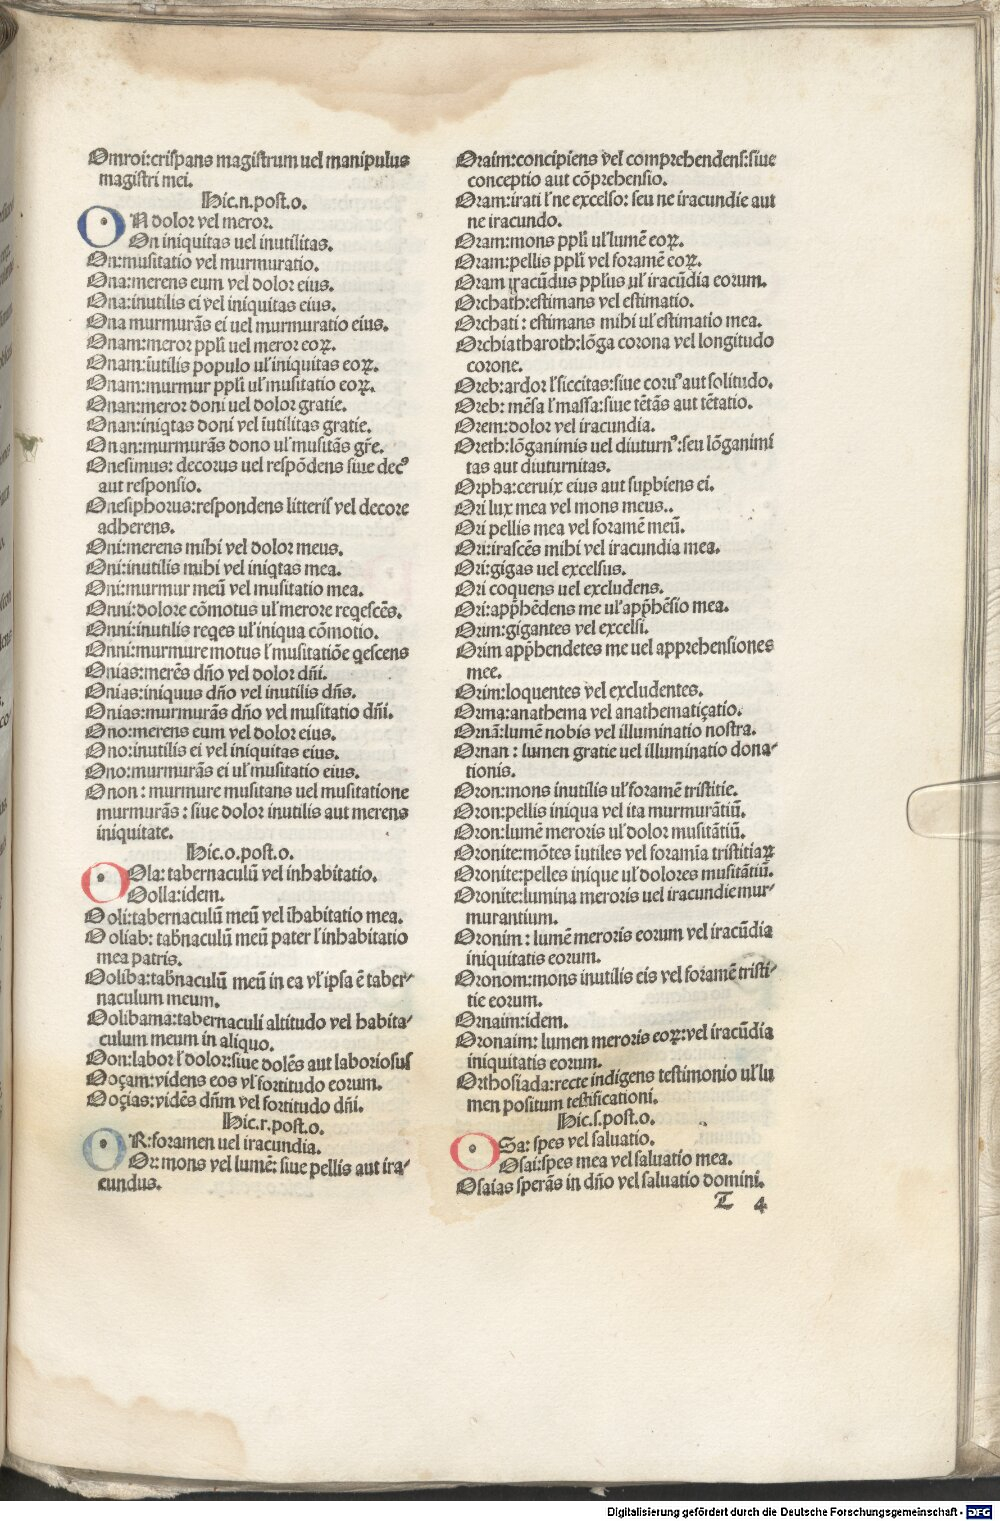 Omroi:crispans magistrum uel manipulus
magistri mei.
Hic.n.post.o.
ON dolor vel meror.
On iniquitas uel inutilitas.
On:musitatio vel murmuratio.
Ona:merens eum vel dolor eius.
Ona:inutilis ei vel iniquitas eius.
Ona murmurãs ei uel murmuratio eius.
Onam:meror ppl̃i uel meror eoꝝ.
Onam:ĩutilis populo ul̃ iniquitas eoꝝ.
Onam:murmur ppl̃i ul̃ musitatio eoꝝ.
Onan:meror doni uel dolor gratie.
Onan:iniq̃tas doni vel ĩutilitas gratie.
Onan:murmurãs dono ul̃ musitãs gr̃e.
Onesimus: decorus uel respõdens siue decꝰ
aut responsio.
Onesiphorus:respondens litteris vel decore
adherens.
Oni:merens mihi vel dolor meus.
Oni:inutilis mihi vel iniq̃tas mea.
Oni:murmur meũ vel musitatio mea.
Onni:dolore cõmotus ul̃ merore reqescẽs.
Onni:inutilis reqes ul̃ iniqua cõmotio.
Onni:murmure motus l̃ musitatiõe qescens
Onias:merẽs dño vel dolor dñi.
Onias:iniquus dño vel inutilis dñs.
Onias:murmurãs dño vel musitatio dñi.
Ono:merens eum vel dolor eius.
Ono:inutilis ei vel iniquitas eius.
Ono:murmurãs ei ul̃ musitatio eius.
Onon: murmure musitans uel musitatione
murmurãs: siue dolor inutilis aut merens
iniquitate.
Hic.o.post.o.
Oola: tabernaculũ vel inhabitatio.
Oolla:idem.
Ooli:tabernaculũ meũ vel ĩhabitatio mea.
Ooliab: tab̃naculũ meũ pater l̃ inhabitatio
mea patris.
Ooliba:tab̃naculũ meũ in ea vl̃ ipsa ẽ taber-
naculum meum.
Oolibama:tabernaculi altitudo vel habita-
culum meum in aliquo.
Oon:labor l̃ dolor:siue dolẽs aut laboriosus
Ooçam:videns eos vl̃ fortitudo eorum.
Ooçias:vidẽs dñm vel fortitudo dñi.
Hic.r.post.o.
OR:foramen uel iracundia.
Or: mons vel lumẽ: siue pellis aut ira-
cundus.
Oraim:concipiens vel comprehendens:siue
conceptio aut cõprehensio.
Oram:irati l̃ ne excelso: seu ne iracundie aut
ne iracundo.
Oram:mons ppl̃i ul̃ lumẽ eoꝝ.
Oram:pellis ppl̃i vel foramẽ eoꝝ.
Oram iracũdus ppl̃us ul̃ iracũdia eorum.
Orchath:estimans vel estimatio.
Orchati: estimans mihi ul̃ estimatio mea.
Orchiatharoth:lõga corona vel longitudo
corone.
Oreb:ardor l̃ siccitas:siue coruꝰ aut solitudo.
Oreb: mẽsa l̃ massa:siue tẽtãs aut tẽtatio.
Orem:dolor vel iracundia.
Oreth:lõganimis uel diuturnꝰ:seu lõganimi
tas aut diuturnitas.
Orpha:ceruix eius aut sup̱biens ei.
Ori lux mea vel mons meus..
Ori pellis mea vel foramẽ meũ.
Ori:irascẽs mihi vel iracundia mea.
Ori:gigas uel excelsus.
Ori coquens uel excludens.
Ori:app̃hẽdens me ul̃ app̃hẽsio mea.
Orim:gigantes vel excelsi.
Orim app̃hendetes me uel apprehensiones
mee.
Orim:loquentes vel excludentes.
Orma:anathema vel anathematiçatio.
Ornã:lumẽ nobis vel illuminatio nostra.
Ornan: lumen gratie uel illuminatio dona-
tionis.
Oron:mons inutilis ul̃ foramẽ tristitie.
Oron:pellis iniqua vel ita murmurãtiũ.
Oron:lumẽ meroris ul̃ dolor musitãtiũ.
Oronite:mõtes ĩutiles vel foramĩa tristitiaꝝ
Oronite:pelles inique ul̃ dolores musitãtiũ.
Oronite:lumina meroris uel iracundie mur-
murantium.
Oronim: lumẽ meroris eorum vel iracũdia
iniquitatis eorum.
Oronom:mons inutilis eis vel foramẽ tristi-
tie eorum.
Ornaim:idem.
Oronaim: lumen meroris eoꝝ:vel iracũdia
iniquitatis eorum.
Orthosiada:recte indigens testimonio ul̃ lu
men positum testificationi.
Hic.s.post.o.
OSa: spes vel saluatio.
Osai:spes mea vel saluatio mea.
Osaias sperãs in dño vel saluatio domini.
T 4
Digitalisierung gefördert durch die Deutsche Forschungsgemeinschaft - DFG